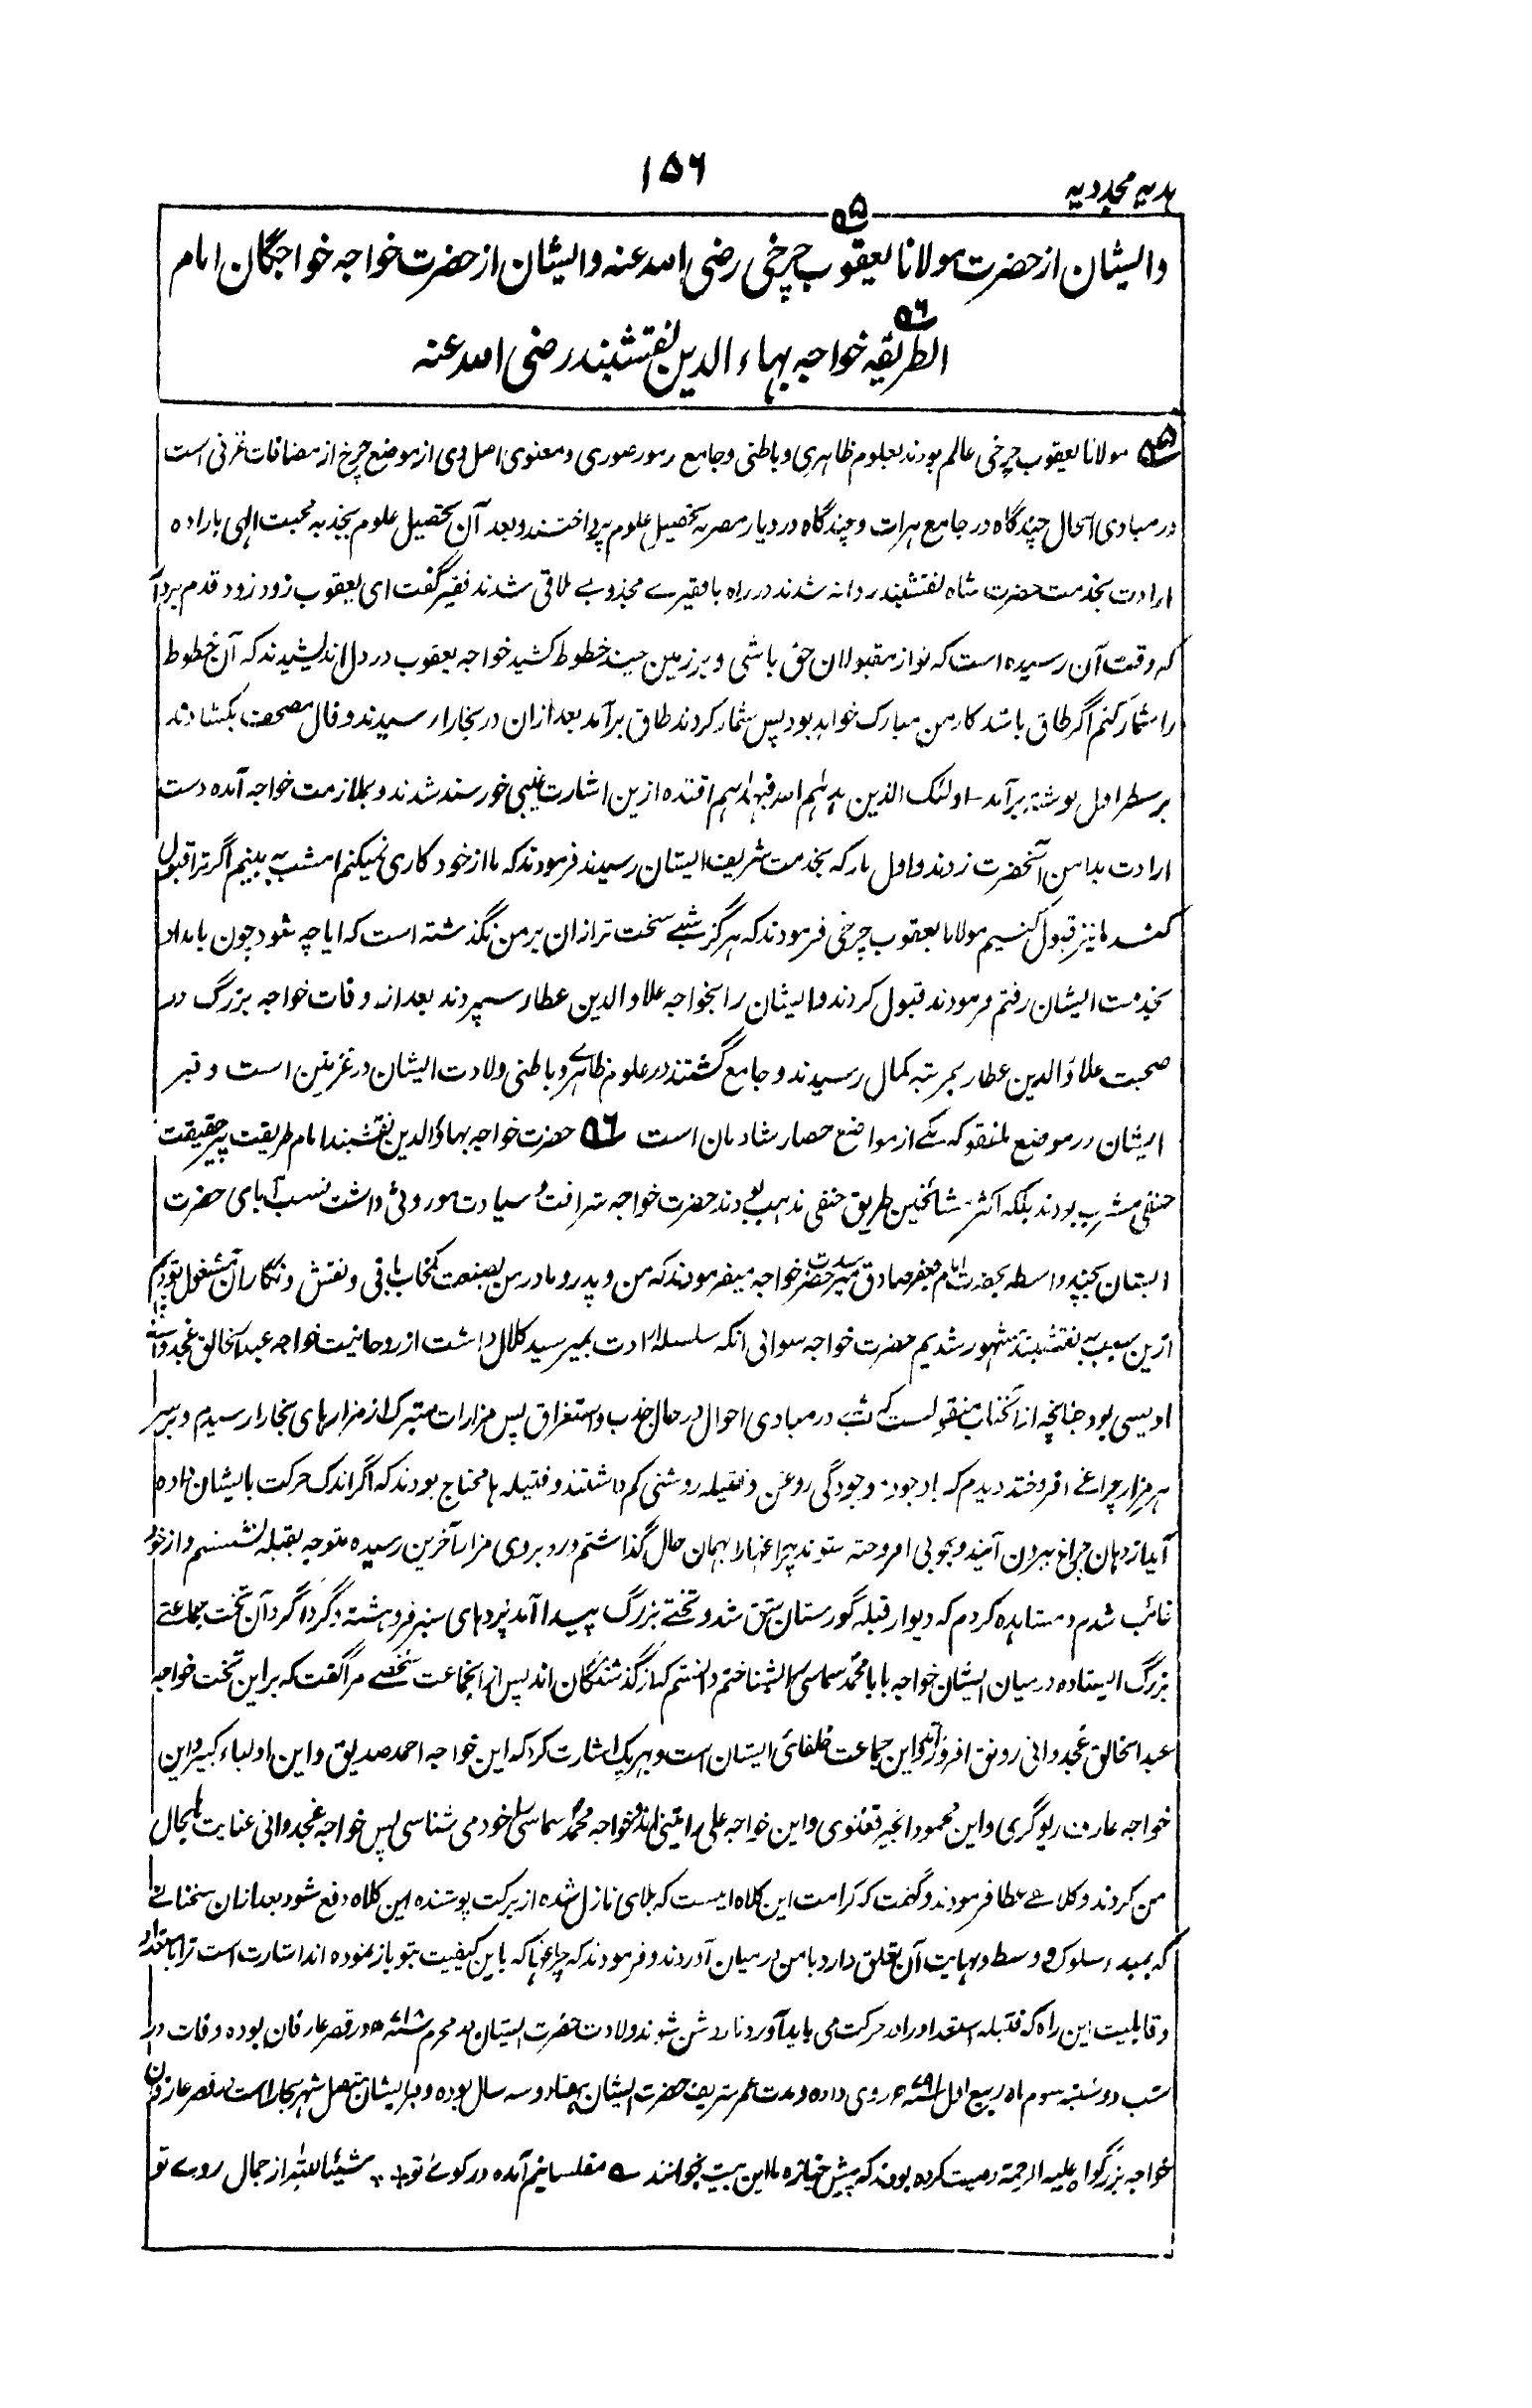 ۱۵۶
ہدیہ مجددیہ
۵۵
وایشان از حضرت مولانا یعقوب چرخی رضی اللہ عنہ وایشان از حضرت خواجہ خواجگان امام
۵۶
الطریقہ خواجہ بہاء الدین نقشبند رضی اللہ عنہ
۵۵ مولانا یعقوب چرخی عالم بودند بعلوم ظاہری و باطنی و جامع رموز صوری و معنوی اصل وی از موضع چرخ از مضافات غزنی است
در مبادی الحال چندگاہ در جامع ہرات و چندگاہ در دیار مصر بتحصیل علوم پرداختند و بعد آن تحصیل علوم بجذبہ محبت الہی بارادہ
ارادت بخدمت حضرت شاہ نقشبند روانہ شدند در راہ با فقیرے مجذوبے ملاقی شدند فقیر گفت ای یعقوب زود زود قدم بردار
کہ وقت آن رسیدہ است کہ تو از مقبولان حق باشی و بر زمین چند خطوط کشید خواجہ یعقوب در دل اندیشیدند کہ آن خطوط
را شمار کنم اگر طاق باشد کار من مبارک خواہد بود پس شمار کردند طاق برآمد بعد ازان در بخارا رسیدند و فال مصحف بکشادند
بر سطر اول نوشتہ برآمد۔ اولئک الذین ہدٰہم اللہ فبہدٰہم اقتدہ ازین اشارت غیبی خورسند شدند و بملازمت خواجہ آمدہ دست
ارادت بدامن آنحضرت زدند و اول بار کہ بخدمت شریف ایشان رسیدند فرمودند کہ ما از خود کاری نمیکنم امشب بہ بینیم اگر ترا قبول
کنند ما نیز قبول کنیم مولانا یعقوب چرخی فرمودند کہ ہرگز شبے سخت تر ازان بر من نگذشتہ است کہ ایا چہ شود چون بامداد
بخدمت ایشان رفتم فرمودند قبول کردند وایشان را بخواجہ علاء الدین عطار سپردند بعد از وفات خواجہ بزرگ در
صحبت علاؤ الدین عطار بمرتبہ کمال رسیدند و جامع گشتند در علوم ظاہرے و باطنی ولادت ایشان در غزنین است و قبر
ایشان در موضع ہلفتو کہ یکے از مواضع حصار شادمان است ۵۶ حضرت خواجہ بہاؤ الدین نقشبند امام طریقت پیر حقیقت
حنفی مشرب بودند بلکہ اکثر مشائخین طریق حنفی مذہب بودند حضرت خواجہ شرافت و سیادت موروثی داشت نسب آبای حضرت
ایشان بچند واسطہ بحضرت امام جعفر صادق میرسد حضرت خواجہ میفرمودند کہ من و پدر و مادر من بصنعت کمخاب بافی و نقش و نگاران مشغول بودیم
ازین سبب بہ نقشبند مشہور شدیم حضرت خواجہ سوائی آنکہ سلسلہ ارادت بمیر سید کلال داشت از روحانیت خواجہ عبد الخالق غجدوانی
اویسی بود چنانچہ از آنجناب منقولست کہ شبے در مبادی احوال در حال جذب و استغراق پس مزارات متبرک از مزارہای بخارا رسیدم و بر سر
ہر مزار چراغے افروختہ دیدم کہ باوجود موجودگی روغن و فتیلہ روشنی کم داشتند و فتیلہ ہا محتاج بودند کہ اگر اندک حرکت بایشان دادہ
آید از دہان چراغ بیرون آیند و بخوبی افروختہ شوند چراغہا را بہمان حال گذاشتم و رو بروی مزار آخرین رسیدہ متوجہ بقبلہ نشستم و از خود
غائب شدم و مشاہدہ کردم کہ دیوار قبلہ گورستان شق شد و تختے بزرگ پیدا آمد پردہای سبز فروہشتہ و گرداگرد آن تخت جماعتے
بزرگ ایستادہ درمیان ایشان خواجہ بابا محمد سماسی را بشناختم دانستم کہ از گذشتگان اند پس از انجماعت شخصے مرا گفت کہ بر این تخت خواجہ
عبد الخالق غجدوانی رونق افروز اند و این جماعت خلفائی ایشان است و بہر یک اشارت کرد کہ این خواجہ احمد صدیق و این اولیاء کبیر و این
خواجہ عارف ریوگری و این محمود انجیر فغنوی و این خواجہ علی رامیتنی اند و خواجہ محمد سماسی را خود می شناسی پس خواجہ غجدوانی عنایت بحال
من کردند و کلاہے عطا فرمودند و گفت کہ کرامت این کلاہ اینست کہ بلای نازل شدہ از برکت پوشندہ این کلاہ دفع شود بعد ازان سخنانے
کہ بمبدء سلوک و وسط و نہایت آن تعلق دارد با من درمیان آوردند و فرمودند کہ چراغہا کہ باین کیفیت بتو باز نمودہ اند اشارت است ترا باستعداد
و قابلیت این راہ کہ فتیلہ استعداد را در حرکت می باید آورد تا روشن شوند ولادت حضرت ایشان در محرم در قصر عارفان بودہ وفات در
شب دوشنبہ سوم ماہ ربیع اول روی دادہ و مدت عمر شریف حضرت ایشان ہفتاد و سہ سال بودہ و قبر ایشان متصل شہر بخارا است در قصر عارفان
خواجہ بزرگوار علیہ الرحمۃ وصیت کردہ بودند کہ پیش جنازہ ما این بیت بخوانند ؎ مفلسانیم آمدہ در کوئے تو ؞ شیئا للہ از جمال روے تو